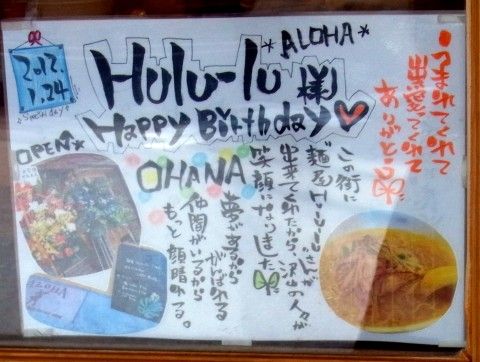 2012.
1.24
Special day
*ALOHA*
Hulu-lu 様
Happy Birthday
うまれてくれて
出逢えてくれて
ありがとう
OPEN
OHANA
この街に
麺屋Hulu-luさんが
出来てくれたから、沢山の人々が
笑顔になりました
夢があるから
がんばれる
仲間がいるから
もっと頑張れる。
ALOHA